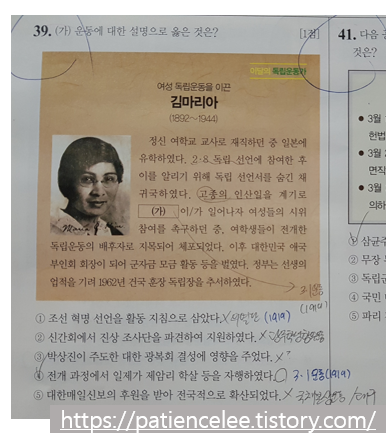 39. (가) 운동에 대한 설명으로 옳은 것은? [1점]
이달의 독립운동가
여성 독립운동을 이끈
김마리아
(1892~1944)
정신 여학교 교사로 재직하던 중 일본에
유학하였다. 2·8 독립 선언에 참여한 후
이를 알리기 위해 독립 선언서를 숨긴 채
귀국하였다. 고종의 인산일을 계기로
(가) 이/가 일어나자 여성들의 시위
참여를 촉구하던 중, 여학생들이 전개한
독립운동의 배후자로 지목되어 체포되었다. 이후 대한민국 애국
부인회 회장이 되어 군자금 모금 활동 등을 벌였다. 정부는 선생의
업적을 기려 1962년 건국 훈장 독립장을 추서하였다.
3·1운동
(1919)
① 조선 혁명 선언을 활동 지침으로 삼았다. X 의열단 (1919)
② 신간회에서 진상 조사단을 파견하여 지원하였다. X
③ 박상진이 주도한 대한 광복회 결성에 영향을 주었다. X ?
④ 전개 과정에서 일제가 제암리 학살 등을 자행하였다. O 3·1운동(1919)
⑤ 대한매일신보의 후원을 받아 전국적으로 확산되었다. X 국채보상운동
41. 다음
것은?
● 3월
헌법
● 3월
면직
● 3월
의하
① 삼균주
② 무장
③ 독립군
④ 국민
⑤ 파리
https://patiencelee.tistory.com/